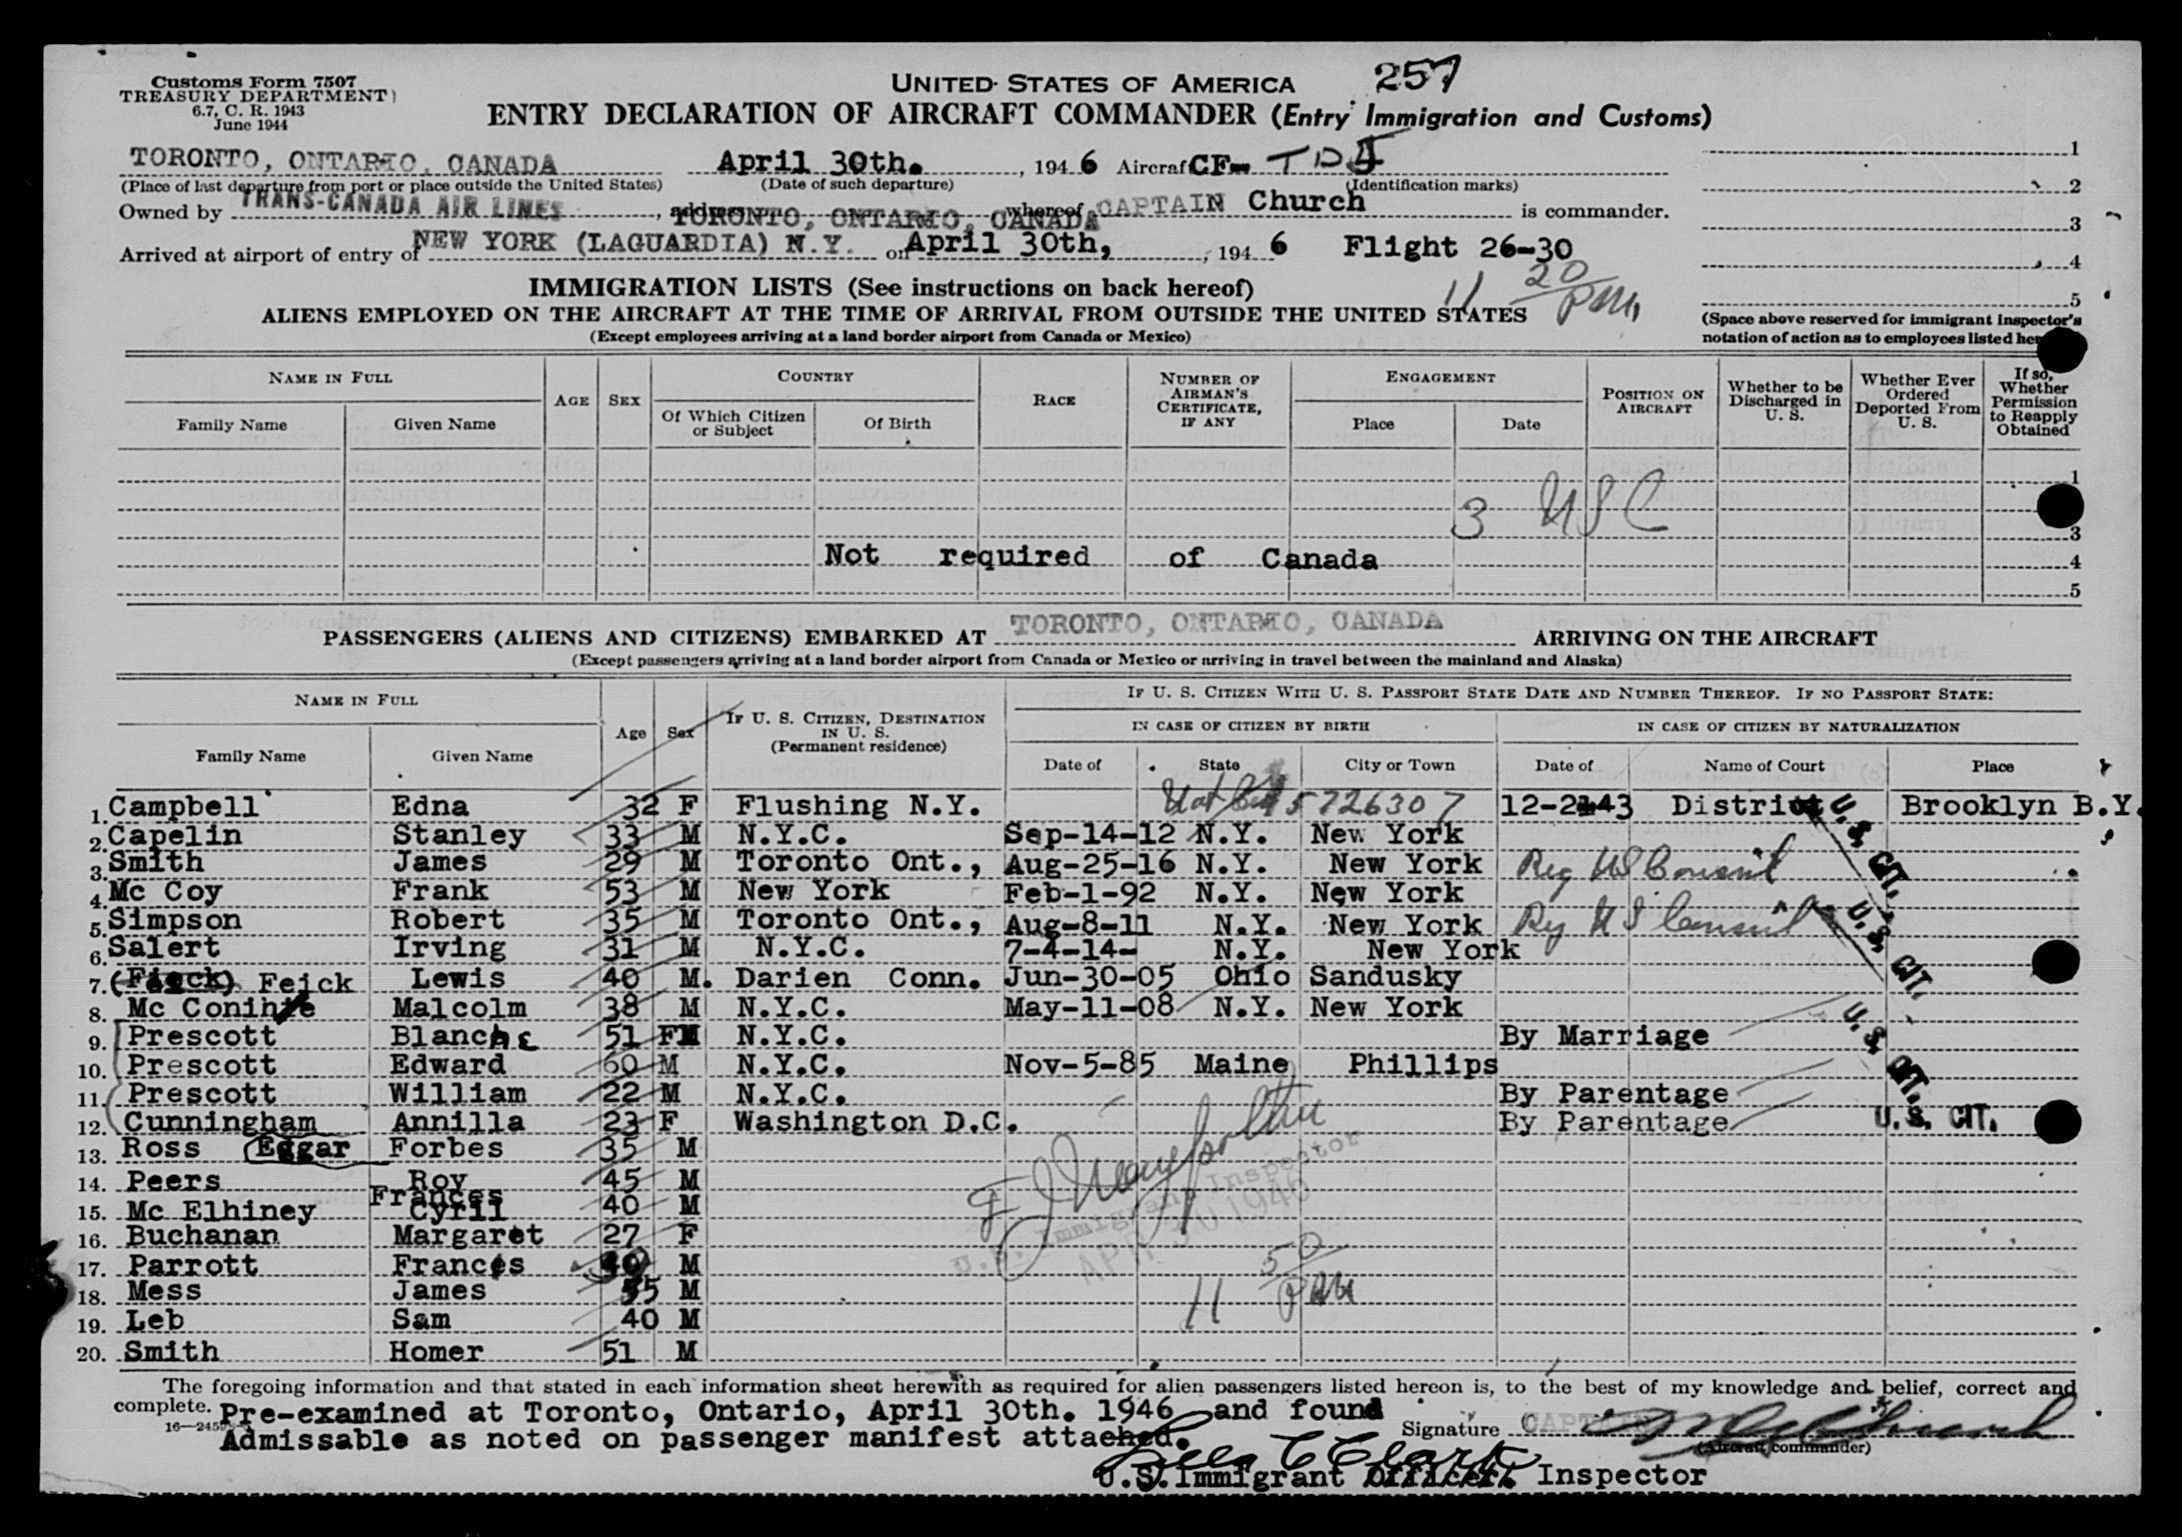 Customs Form 7507
TREASURY DEPARTMENT
6.7, C. R. 1943
June 1944
UNITED STATES OF AMERICA 257
ENTRY DECLARATION OF AIRCRAFT COMMANDER (Entry Immigration and Customs)
TORONTO, ONTARIO, CANADA April 30th. , 1946 Aircraft CF- TDJ
(Place of last departure from port or place outside the United States) (Date of such departure) (Identification marks)
Owned by TRANS-CANADA AIR LINES , address TORONTO, ONTARIO, CANADA whereof CAPTAIN Church is commander.
Arrived at airport of entry of NEW YORK (LAGUARDIA) N.Y. on April 30th, , 1946 Flight 26-30
11 20 PM
1
2
3
4
5
(Space above reserved for immigrant inspector's
notation of action as to employees listed
IMMIGRATION LISTS (See instructions on back hereof)
ALIENS EMPLOYED ON THE AIRCRAFT AT THE TIME OF ARRIVAL FROM OUTSIDE THE UNITED STATES
(Except employees arriving at a land border airport from Canada or Mexico)
NAME IN FULL
Family Name Given Name
AGE SEX
COUNTRY
Of Which Citizen or Subject Of Birth
RACE
NUMBER OF AIRMAN'S CERTIFICATE, IF ANY
ENGAGEMENT
Place Date
POSITION ON AIRCRAFT
Whether to be Discharged in U. S.
Whether Ever Ordered Deported From U. S.
If so, Whether Permission to Reapply Obtained
1
3 USC
3
Not required of Canada 4
5
PASSENGERS (ALIENS AND CITIZENS) EMBARKED AT TORONTO, ONTARIO, CANADA ARRIVING ON THE AIRCRAFT
(Except passengers arriving at a land border airport from Canada or Mexico or arriving in travel between the mainland and Alaska)
NAME IN FULL
Family Name Given Name
Age Sex
IF U. S. CITIZEN, DESTINATION IN U. S. (Permanent residence)
IF U. S. CITIZEN WITH U. S. PASSPORT STATE DATE AND NUMBER THEREOF. IF NO PASSPORT STATE:
IN CASE OF CITIZEN BY BIRTH IN CASE OF CITIZEN BY NATURALIZATION
Date of State City or Town Date of Name of Court Place
1. Campbell Edna 32 F Flushing N.Y. 5726307 12-2143 District Brooklyn B.Y.
2. Capelin Stanley 33 M N.Y.C. Sep-14-12 N.Y. New York
3. Smith James 29 M Toronto Ont., Aug-25-16 N.Y. New York Reg US Consul
4. Mc Coy Frank 53 M New York Feb-1-92 N.Y. New York
5. Simpson Robert 35 M Toronto Ont., Aug-8-11 N.Y. New York Reg U S Consul
6. Salert Irving 31 M N.Y.C. 7-4-14- N.Y. New York
7. (Fieck) Feick Lewis 40 M. Darien Conn. Jun-30-05 Ohio Sandusky
8. Mc Conihie Malcolm 38 M N.Y.C. May-11-08 N.Y. New York
9. Prescott Blanche 51 F N.Y.C. By Marriage
10. Prescott Edward 60 M N.Y.C. Nov-5-85 Maine Phillips
11. Prescott William 22 M N.Y.C. By Parentage
12. Cunningham Annilla 23 F Washington D.C. By Parentage U.S. CIT.
U.S. CIT.
U.S. CIT.
U.S. CIT.
13. Ross Edgar Forbes 35 M
14. Peers Roy 45 M
15. Mc Elhiney Frances Cyril 40 M
16. Buchanan Margaret 27 F
17. Parrott Francis M
18. Mess James M
19. Leb Sam 40 M
20. Smith Homer 51 M
U.S. Immigrant Inspector
APR 30 1946
11 50 PM
The foregoing information and that stated in each information sheet herewith as required for alien passengers listed hereon is, to the best of my knowledge and belief, correct and
complete. Pre-examined at Toronto, Ontario, April 30th. 1946 and found
Admissable as noted on passenger manifest attached.
Signature CAPTAIN
(Aircraft commander)
U.S. Immigrant Officer. Inspector